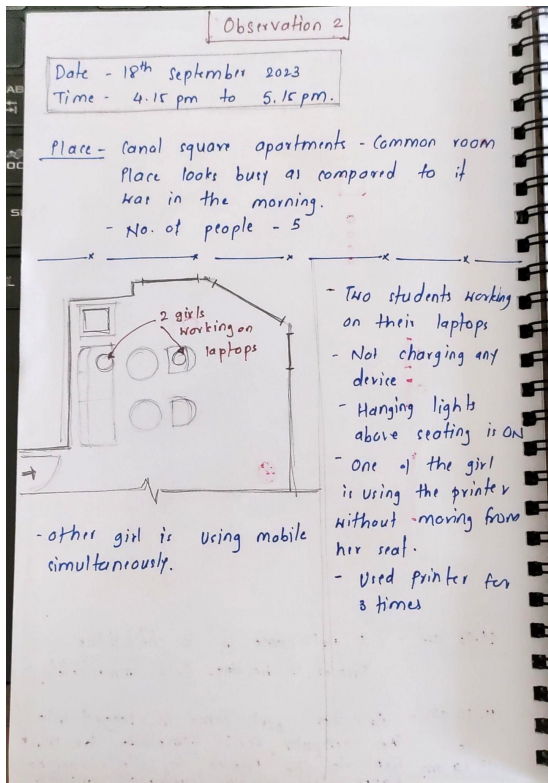 Observation 2
Date - 18th September 2023
Time - 4.15 pm to 5.15 pm.
Place - Canal square apartments - Common room
Place looks busy as compared to it
was in the morning.
- No. of people - 5
2 girls
working on
laptops
- other girl is using mobile
simultaneously.
- Two students working
on their laptops
- Not charging any
device
- Hanging lights
above seating is ON
- One of the girl
is using the printer
without moving from
her seat.
- Used printer for
3 times